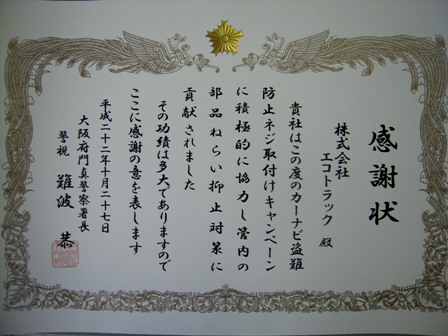 感謝状
株式会社
エコトラック 殿
貴社はこの度のカーナビ盗難
防止ネジ取付けキャンペーン
に積極的に協力し管内の
部品ねらい抑止対策に
貢献されました
その功績は多大でありますので
ここに感謝の意を表します
平成二十二年十月二十七日
大阪府門真警察署長
警視 難波 恭